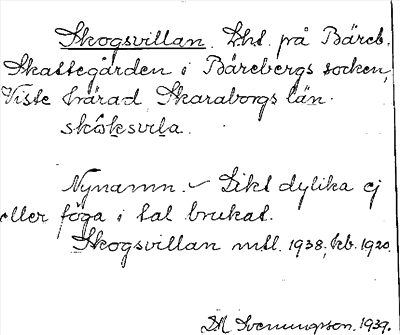 Skogsvillan. Lht. på Bäreb.
Skattegården i Bärebergs socken,
Viste härad, Skaraborgs län.
skôksvila.
Nynamn. – Dikt dylika ej
eller föga i tal brukat.
Skogsvillan mtl. 1938, kb. 1920.
Svenungsson. 1939.